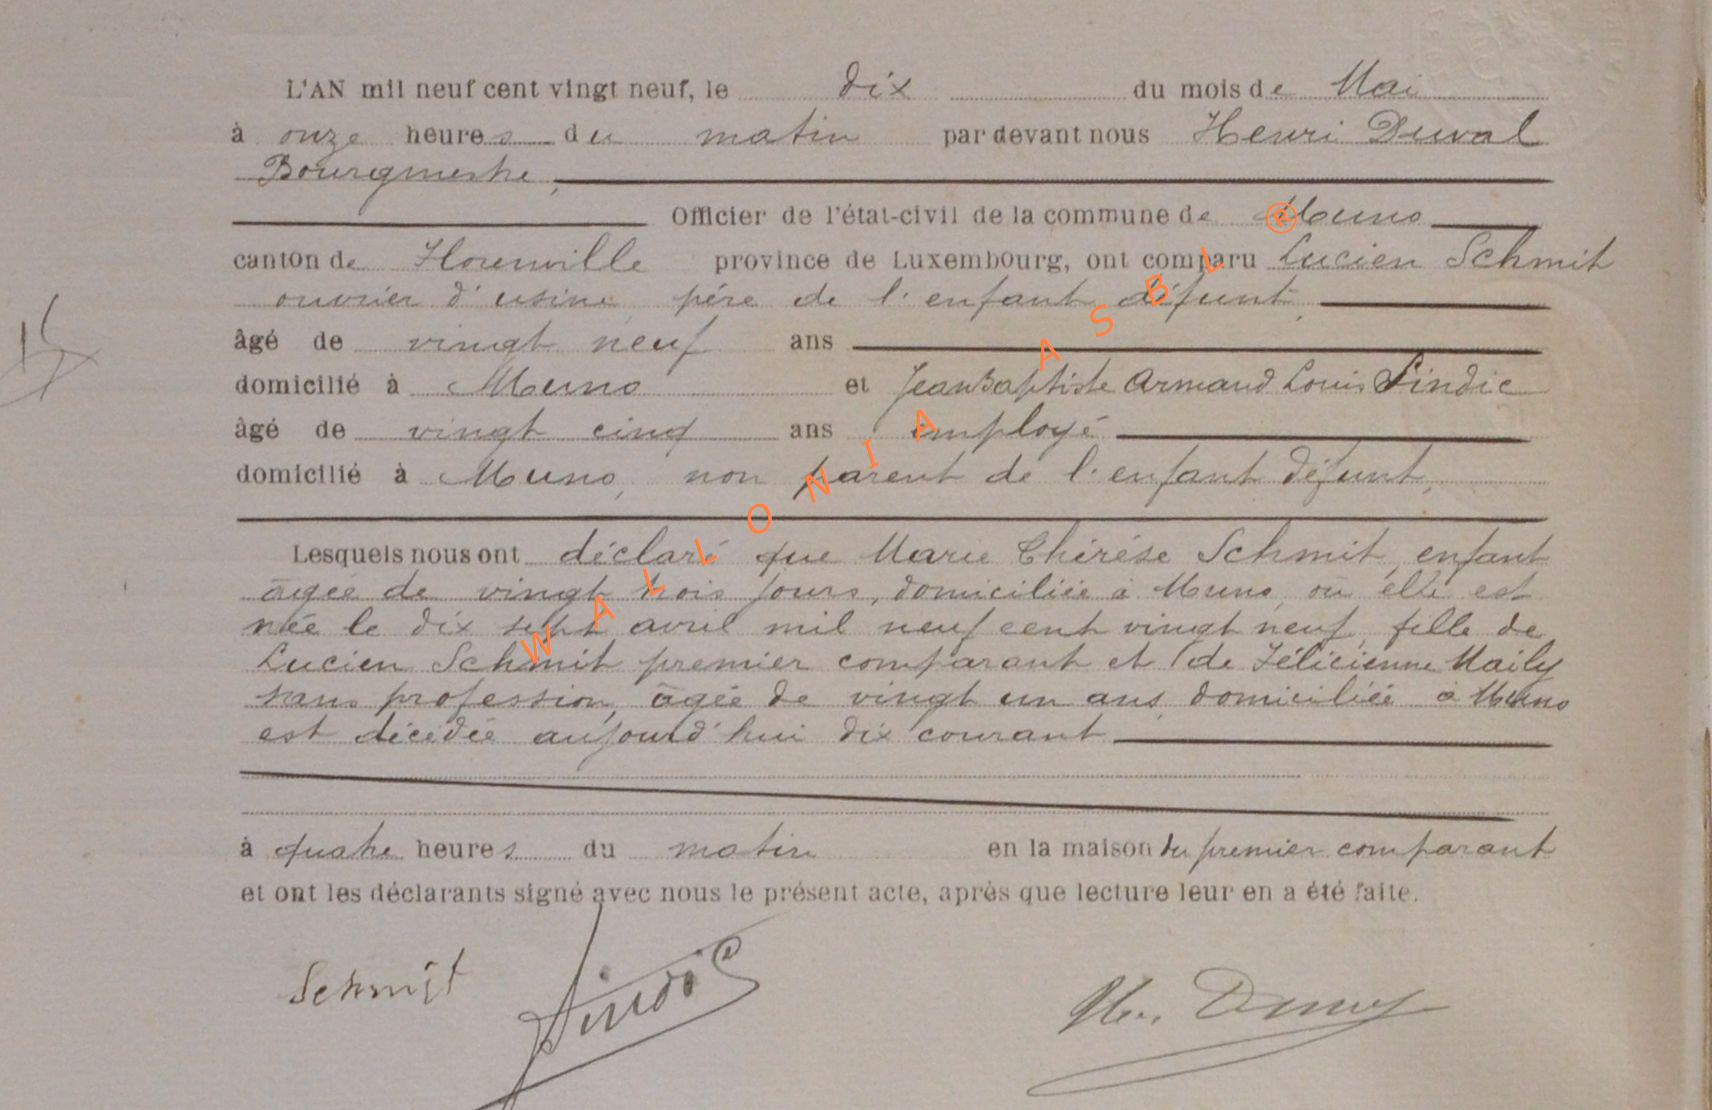 L'AN mil neuf cent vingt neuf, le dix du mois de Mai
à onze heures du matin par devant nous Henri Duval
Bourgmestre,
Officier de l'état-civil de la commune de Muno
canton de Florenville province de Luxembourg, ont comparu Lucien Schmit
ouvrier d'usine, père de l'enfant défunt,
âgé de vingt neuf ans
domicilié à Muno et Jean Baptiste Armand Louis Sindic
âgé de vingt cinq ans employé
domicilié à Muno, non parent de l'enfant défunt,
Lesquels nous ont déclaré que Marie Thérèse Schmit, enfant
âgée de vingt trois jours, domiciliée à Muno, où elle est
née le dix sept avril mil neuf cent vingt neuf, fille de
Lucien Schmit premier comparant et de Félicienne Maily
sans profession, âgée de vingt un ans, domiciliée à Muno
est décédée aujourd'hui dix courant
à quatre heures du matin en la maison du premier comparant
et ont les déclarants signé avec nous le présent acte, après que lecture leur en a été faite.
Schmit Sindic
WALLONIA ASBL ®